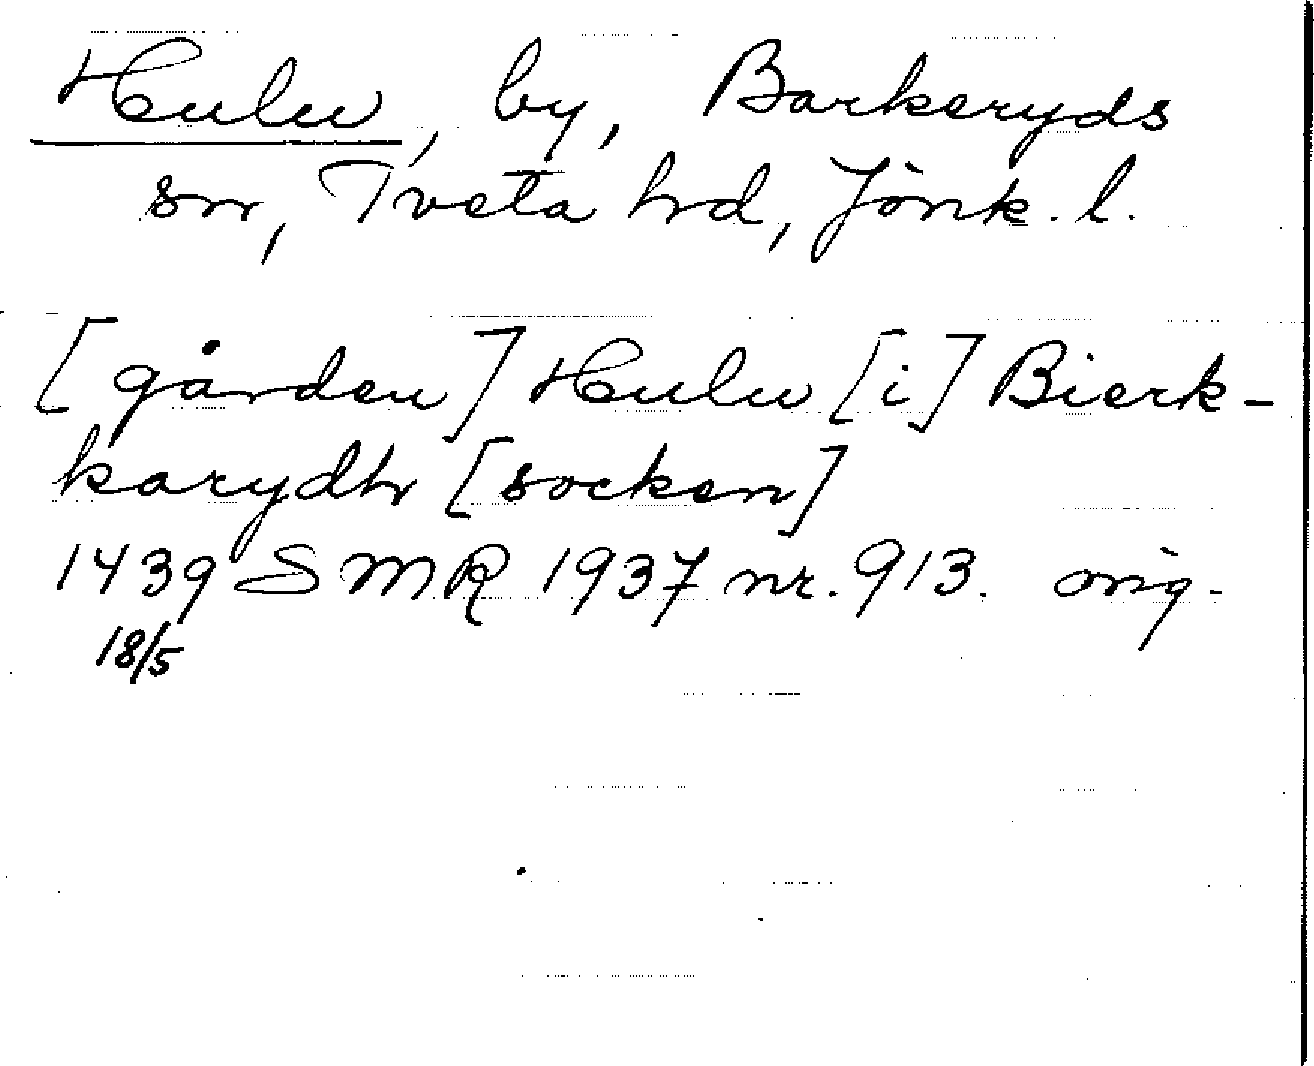 Hulu, by, Barkeryds
sn, Tveta hd, Jönk. l.
[gården] Hulu [i] Bierk-
karydh [socken]
1439 SMR 1937 nr. 913. orig.
18/5